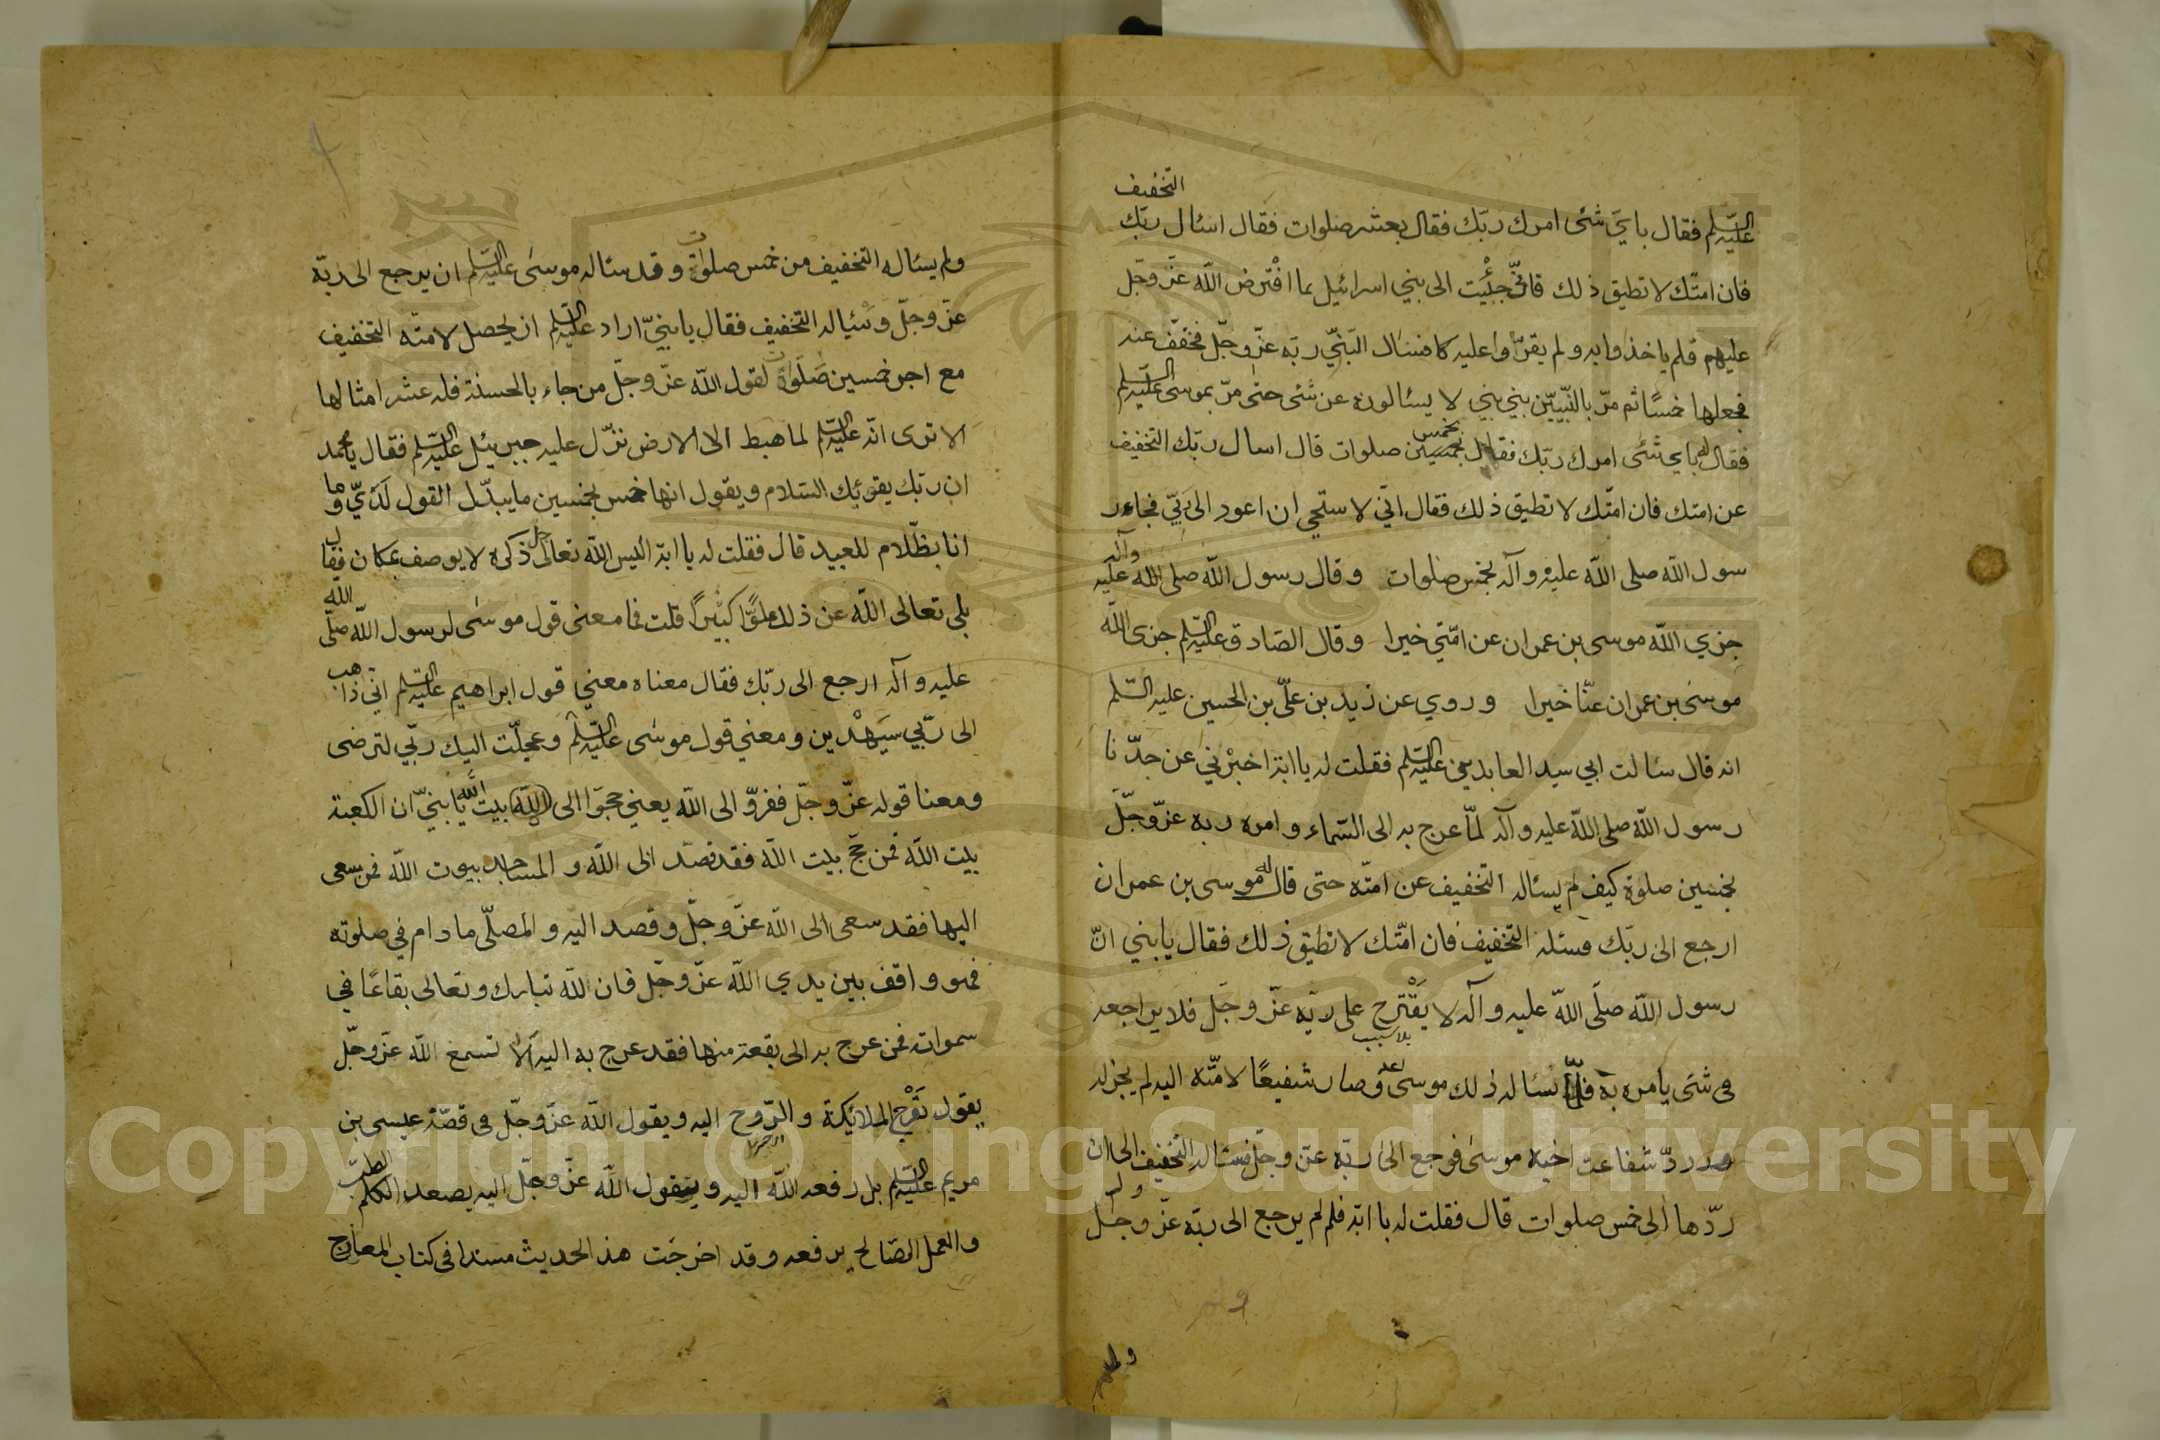 التخفيف
عليه السلم فقال باي شئ امرك ربّك فقال بعشر صلوات فقال اسئال ربّك
فان امتّك لا تطيق ذلك فانّي جئت الى بني اسرائيل بما افترض اللّه عزّ وجلّ
عليهم فلم ياخذوا به ولم يقرّوا عليه كا فسئال النبيّ ربّه عزّ وجلّ فخفّف عنه
فجعلها خمسًا ثم مرّ بالنّبيّين بني بني لا يسئالونه عن شئ حتى مرّ بموسى عليه السلم
فقال له باي شئ امرك ربّك فقال بخمس صلوات قال اسال ربّك التخفيف
عن امتك فان امّتك لا تطيق ذلك فقال انّي لاستحي ان اعود الى ربّي فجاء ر
سول اللّه صلى اللّه عليه وآله بخمس صلوات وقال رسول اللّه صلى اللّه عليه وآله
جزي اللّه موسى بن عمران عن امّتي خيرا وقال الصّادق عليه السّلم جزى اللّه
موسى بن عمران عنّا خيرا وروي عن زيد بن علّي بن الحسين عليه السّلم
انه قال سئالت ابي سيد العابدين عليه السّلم فقلت له يا ابة اخبرني عن جدّنا
رسول اللّه صلى اللّه عليه وآله لمّا عرج به الى السّماء وامره ربه عزّ وجلّ
بخمسين صلوة كيف لم يسئاله التخفيف عن امتّه حتى قال له موسى بن عمران
ارجع الى ربّك فسئله التخفيف فان امّتك لا تطيق ذلك فقال يا بني انّ
رسول اللّه صلّى اللّه عليه وآله لا يقترح على ربّه عزّ وجلّ فلا يراجعه
في شئ يامره به فلمّا سئاله ذلك موسى وصار شفيعًا لامّته اليه لم يجز له
ردّ شفاعة اخيه موسى فرجع الى ربّه عزّ وجلّ فسئاله التخفيف الى ان
ردّها الى خمس صلوات قال فقلت له يا ابة فلم لم يرجع الى ربّه عزّ وجلّ
ولم يسئاله التخفيف من خمس صلوات وقد سئاله موسى عليه السّلم ان يرجع الى ربّه
عزّ وجلّ وسئياله التخفيف فقال يا بنيّ اراد عليه السّلم ان يحصل لامتّه التخفيف
مع اجر خمسين صلوات لقول اللّه عزّ وجلّ من جاء بالحسنة فله عشر امثالها
الا ترى انّه عليه السّلم لما هبط الى الارض نزّل عليه جبرئيل عليه السّلم فقال يا محمد
ان ربّك يقرئك السّلام ويقول انها خمس بخمسين ما يبدّل القول لديّ وما
انا بظّلام للعبيد قال فقلت له يا ابة اليس اللّه تعالى جل ذكره لا يوصف بمكان فقال
بلى تعالى اللّه عن ذلك علوًّا كبيرًا قلت فما معنى قول موسى لرسول اللّه صلّى اللّه
عليه وآله ارجع الى ربّك فقال معناه معني قول ابراهيم عليه السّلم انّي ذاهب
الى ربّي سيهدين ومعني قول موسى عليه السّلم وعجلّت اليك ربّي لترضى
ومعنا قوله عزّ وجلّ ففروّا الى اللّه يعني حجوّا الى بيت اللّه يا بنيّ ان الكعبة
بيت اللّه فمن حجّ بيت اللّه فقد قصد الى اللّه والمساجد بيوت اللّه فمن سعى
اليها فقد سعى الى اللّه عزّ وجلّ وقصد اليه والمصلّى ما دام في صلوته
فهو واقف بين يدي اللّه عزّ وجلّ فان للّه تبارك وتعالى بقاعًا في
سمواته فمن عرج به الى بقعة منها فقد عرج به اليه الا تسمع اللّه عزّ وجلّ
يقول تعرج الملائكة والرّوح اليه ويقول اللّه عزّ وجلّ في قصّة عيسى بن
مريم عليه السّلم بل رفعه اللّه اليه ويقول اللّه عزّ وجلّ اليه يصعد الكلم الطيب
والعمل الصّالح يرفعه وقد اخرجت هذا الحديث مسندا في كتاب المعارج
Copyright © King Saud University